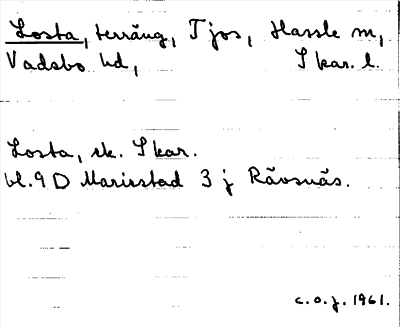 Losta, terräng, Tjos, Hassle sn,
Vadsbo hd, Skar. l.
Losta, ek. Skar.
bl. 9 D Mariestad 3 j Rävsnäs.
c.o.j. 1961.